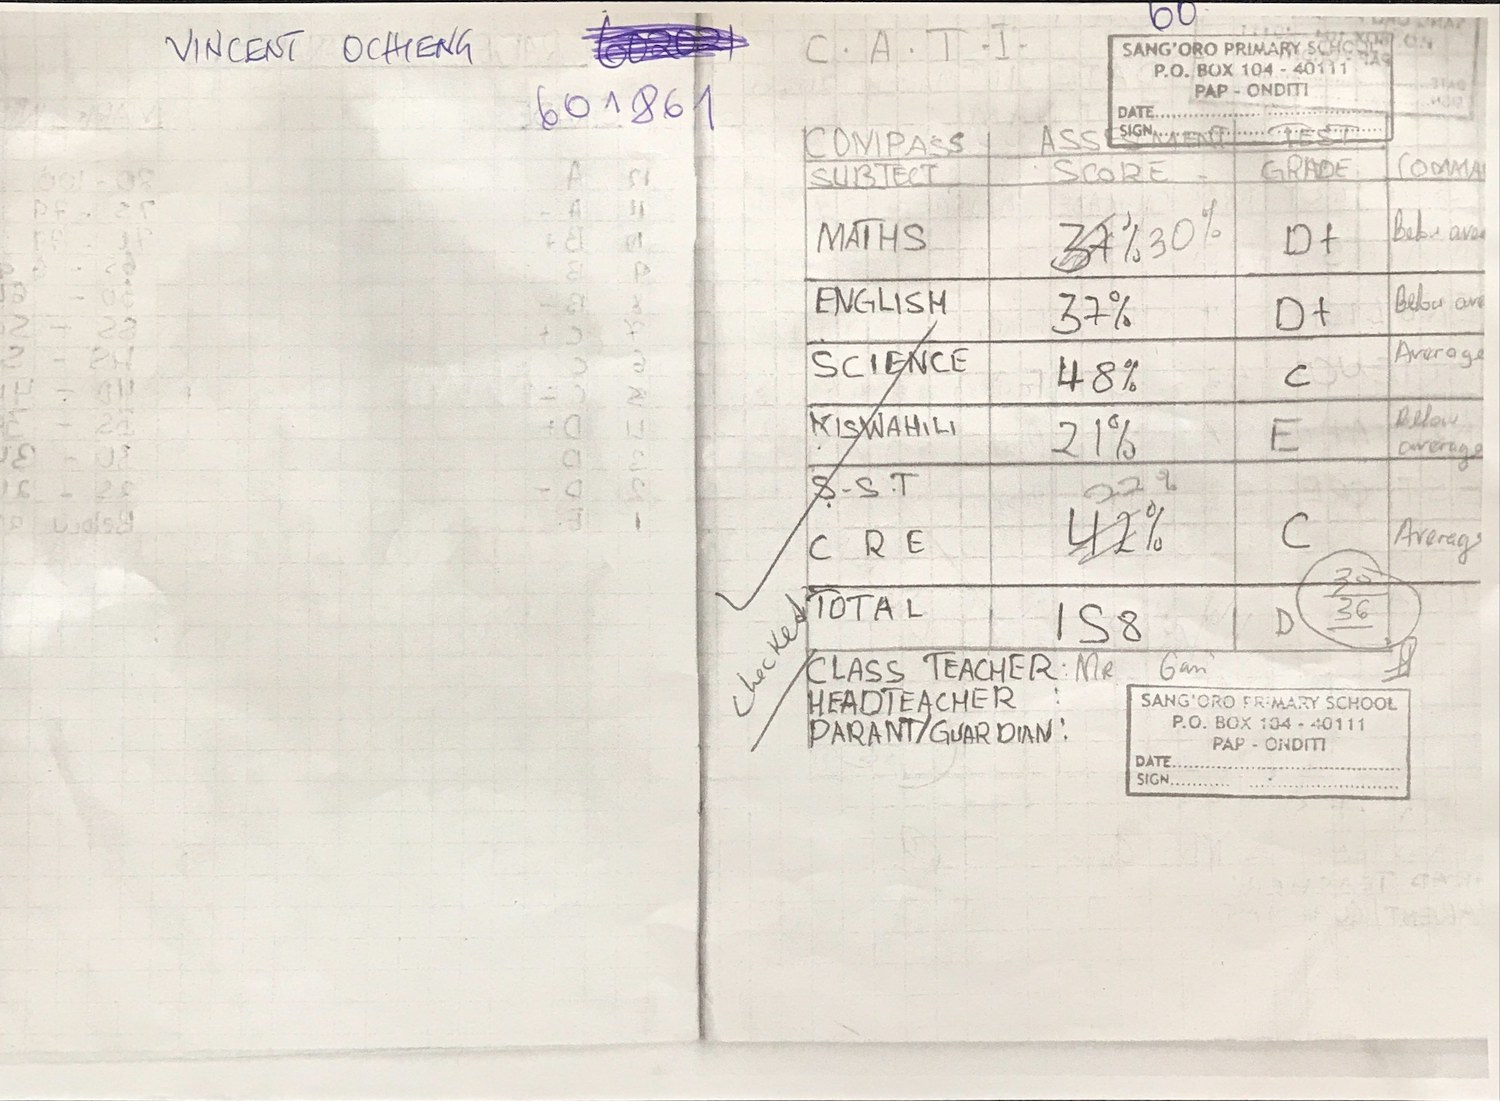 VINCENT OCHIENG
601861
60
C.A.T.I.
SANG'ORO PRIMARY SCHOOL
P.O. BOX 104 - 40111
PAP - ONDITI
DATE
SIGN
COMPASS ASSESMENT TEST
SUBTECT SCORE GRADE COMMA
MATHS 37% 30% D+ Below ave
ENGLISH 37% D+ Below ave
SCIENCE 48% C Average
KISWAHILI 21% E Below average
S.S.T 22%
C R E 42% C Average
TOTAL 158 D
36
checked
CLASS TEACHER: Mr
HEADTEACHER :
PARANT/GUARDIAN:
SANG'ORO PRIMARY SCHOOL
P.O. BOX 104 - 40111
PAP - ONDITI
DATE
SIGN